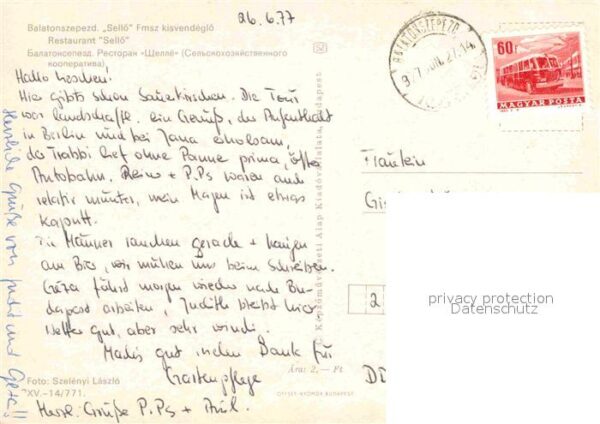 26.6.77
Balatonszepezd. „Sellő" Fmsz kisvendéglő
Restaurant "Sellő"
Балатонсепезд. Ресторан «Шеллё» (Сельскохозяйственного
кооператива)
Hier gibts schon Sauerkirschen. Die Tour
war landschaftl. ein Genuß, der Aufenthalt
in Berlin und bei Jana erholsam,
der Trabbi lief ohne Panne prima,
Autobahn. + P.Ps waren auch
relativ munter, mein Magen ist etwas
kaputt.
Die Männer rauchen gerade + hängen
am Bier, wir mühen uns beim Schreiben.
Géza fährt morgen wieder nach Bu-
dapest arbeiten, Judith bleibt hier
Wetter gut, aber sehr windi.
Machs gut vielen Dank für
Gartenpflege
Herzl. Grüße P.Ps +
Herzliche Grüße von Judit und Géza!!
Foto: Szelényi László
XV.–14/771.
Képzőművészeti Alap Kiadóvállalata, Budapest
Ára: 2,– Ft
OFFSET-NYOMDA BUDAPEST
BALATONSZEPEZD
60f
MAGYAR POSTA
Fräulein
2
privacy protection
Datenschutz